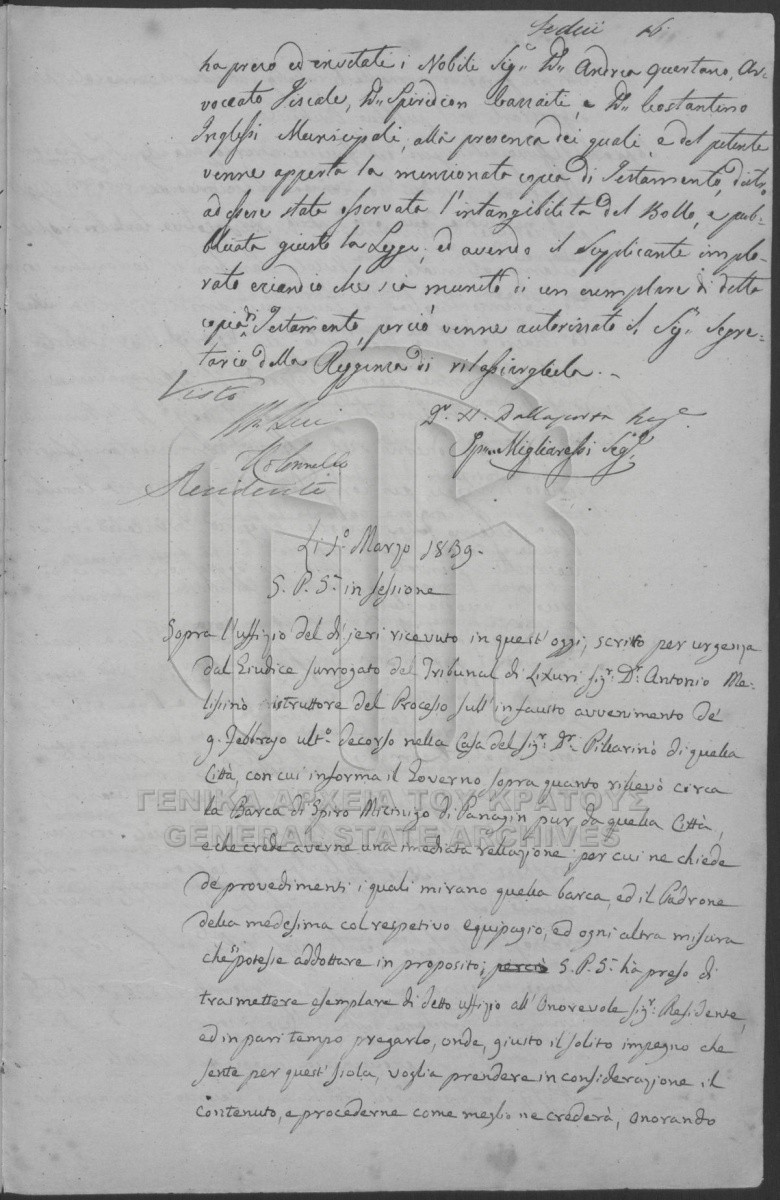 Sedici 16.
ha preso ed invitati i Nobile Sig.ri D.r Andrea Quartano, Av-
vocato Fiscale, D.n Spiridion Cassaiti, e D.n Costantino
Inglessi Municipali, alla presenza dei quali, e del petente
venne apperta la menzionata copia di Testamento, dietro
ad essere stata osservata l'intangibilita del Bollo, e pub-
blicata giusto la Legge, ed avendo il Supplicante implo-
rato eziandio che sia munito di un exemplare di detta
copia di Testamento, perciò venne autorizzato il Sig.r Segre-
tario della Reggenza di rilassiarglela. –
Visto
Colonnello
Residente
D.r N. Dallaporta Reg.e
Sp.n Migliaressi Seg.o
Li 1.o Marzo 1839.
S. P. S.a in sessione
Sopra l'uffizio del dì jeri ricevuto in quest'oggi, scritto per urgenza
dal Giudice surrogato del Tribunal di Lixuri Sig.r D.r Antonio Me-
lissinò istruttore del Processo sull'infausto avvenimento de'
9. Febbrajo ult.o decorso nella Casa del Sig.r D.r Pillarinò di quella
Città, con cui informa il Governo sopra quanto rillevò circa
la Barca di Spiro Micnigo di Panagin pur da quella Città,
e che crede averne una imediata rellazione; per cui ne chiede
de' provedimenti i quali mirano quella barca, ed il Padrone
della medesima col respetivo equipagio, ed ogni altra misura
che si potesse addottare in proposito; perciò S. P. S.a hà preso di
trasmettere esemplare di detto uffizio all'Onorevole Sig.r Residente,
ed in pari tempo pregarlo, onde, giusto il solito impegno che
sente per quest'isola, voglia prendere in considerazione il
contenuto, e procederne come meglio ne crederà, onorando
ΓΕΝΙΚΑ ΑΡΧΕΙΑ ΤΟΥ ΚΡΑΤΟΥΣ
GENERAL STATE ARCHIVES